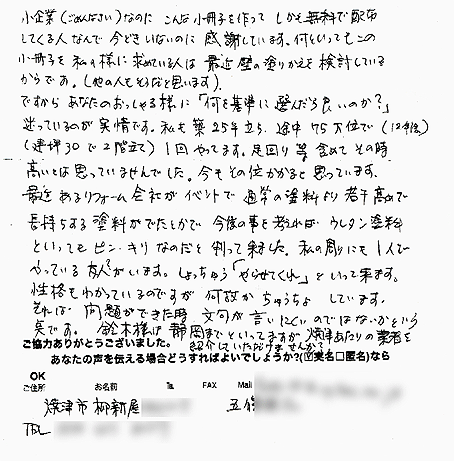 小企業(ごめんなさい)なのに こんな小冊子を作って しかも無料で配布
してくる人なんて 今どきいないのに 感謝しています。何といってもこの
小冊子を 私の様に求めている人は 最近 壁の塗りかえを 検討している
からです。(他の人もそうなと思います)。
ですから あなたのおっしゃる様に「何を基準に選んだら良いのか?」
迷っているのが 実情です。私も 築25年立ち 途中 75万位で(12年後)
(建坪30で2階立て) 1回 やってます。足回り 等 含めて その時
高いとは思っていませんでした。今もその位かなあと思っています。
最近 あるリフォーム会社が イベントで 通常の塗料より 若干高めで
長持ちする塗料がでたとかで 今後の事を考えれば ウレタン塗料
といっても ピン・キリなのだと 判って来ました。私の周りにも 1人で
やっている友人がいます。しょっちゅう「やらせてくれ」といって来ます。
性格もわかっているのですが 何故か ちゅうちょ しています。
それは 問題ができた時 文句が 言いにくいのではないかという
実です。 鈴木様は 静岡までといってますが 焼津あたりの業者を
紹介していただけませんか?
ご協力ありがとうございました。
あなたの声を伝える場合どうすればよいでしょうか?(☑実名□匿名)なら
OK
ご住所 お名前 Tel FAX Mail
焼津市柳新屋 五條
TEL